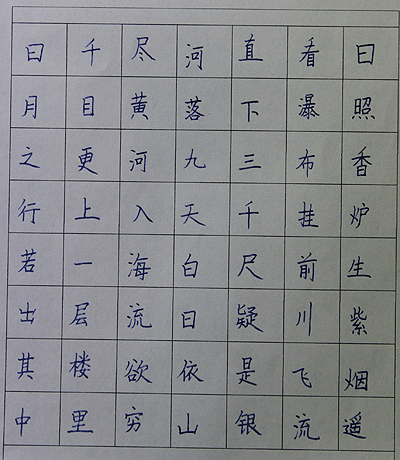 日照香炉生紫烟遥
看瀑布挂前川飞流
直下三千尺疑是银
河落九天白日依山
尽黄河入海流欲穷
千目更上一层楼里
日月之行若出其中